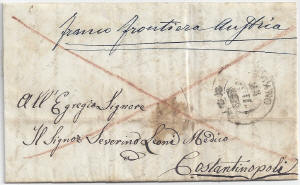 franco frontiera Austria
All' Egregio Signore
Il Signor Severino Leone Medico
Costantinopoli